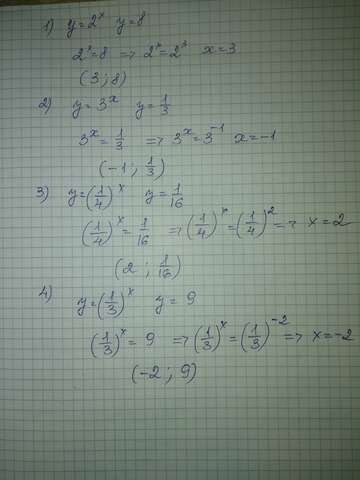 1) y=2^x y=8
2^x=8 => 2^x=2^3 x=3
(3;8)
2) y=3^x y=1/3
3^x=1/3 => 3^x=3^-1 x=-1
(-1; 1/3)
3) y=(1/4)^x y=1/16
(1/4)^x=1/16 => (1/4)^x=(1/4)^2 => x=2
(2; 1/16)
4) y=(1/3)^x y=9
(1/3)^x=9 => (1/3)^x=(1/3)^-2 => x=-2
(-2; 9)